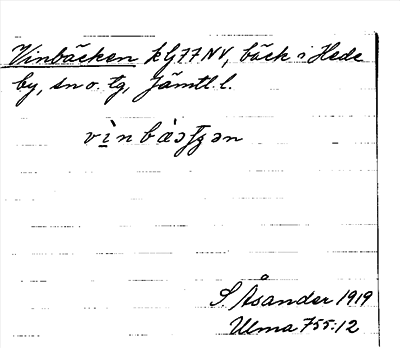 Vinbäcken kG77NV, bäck i Hede
by, sn o. tg, Jämtl. l.
S. Åsander 1919
Ulma 755:12